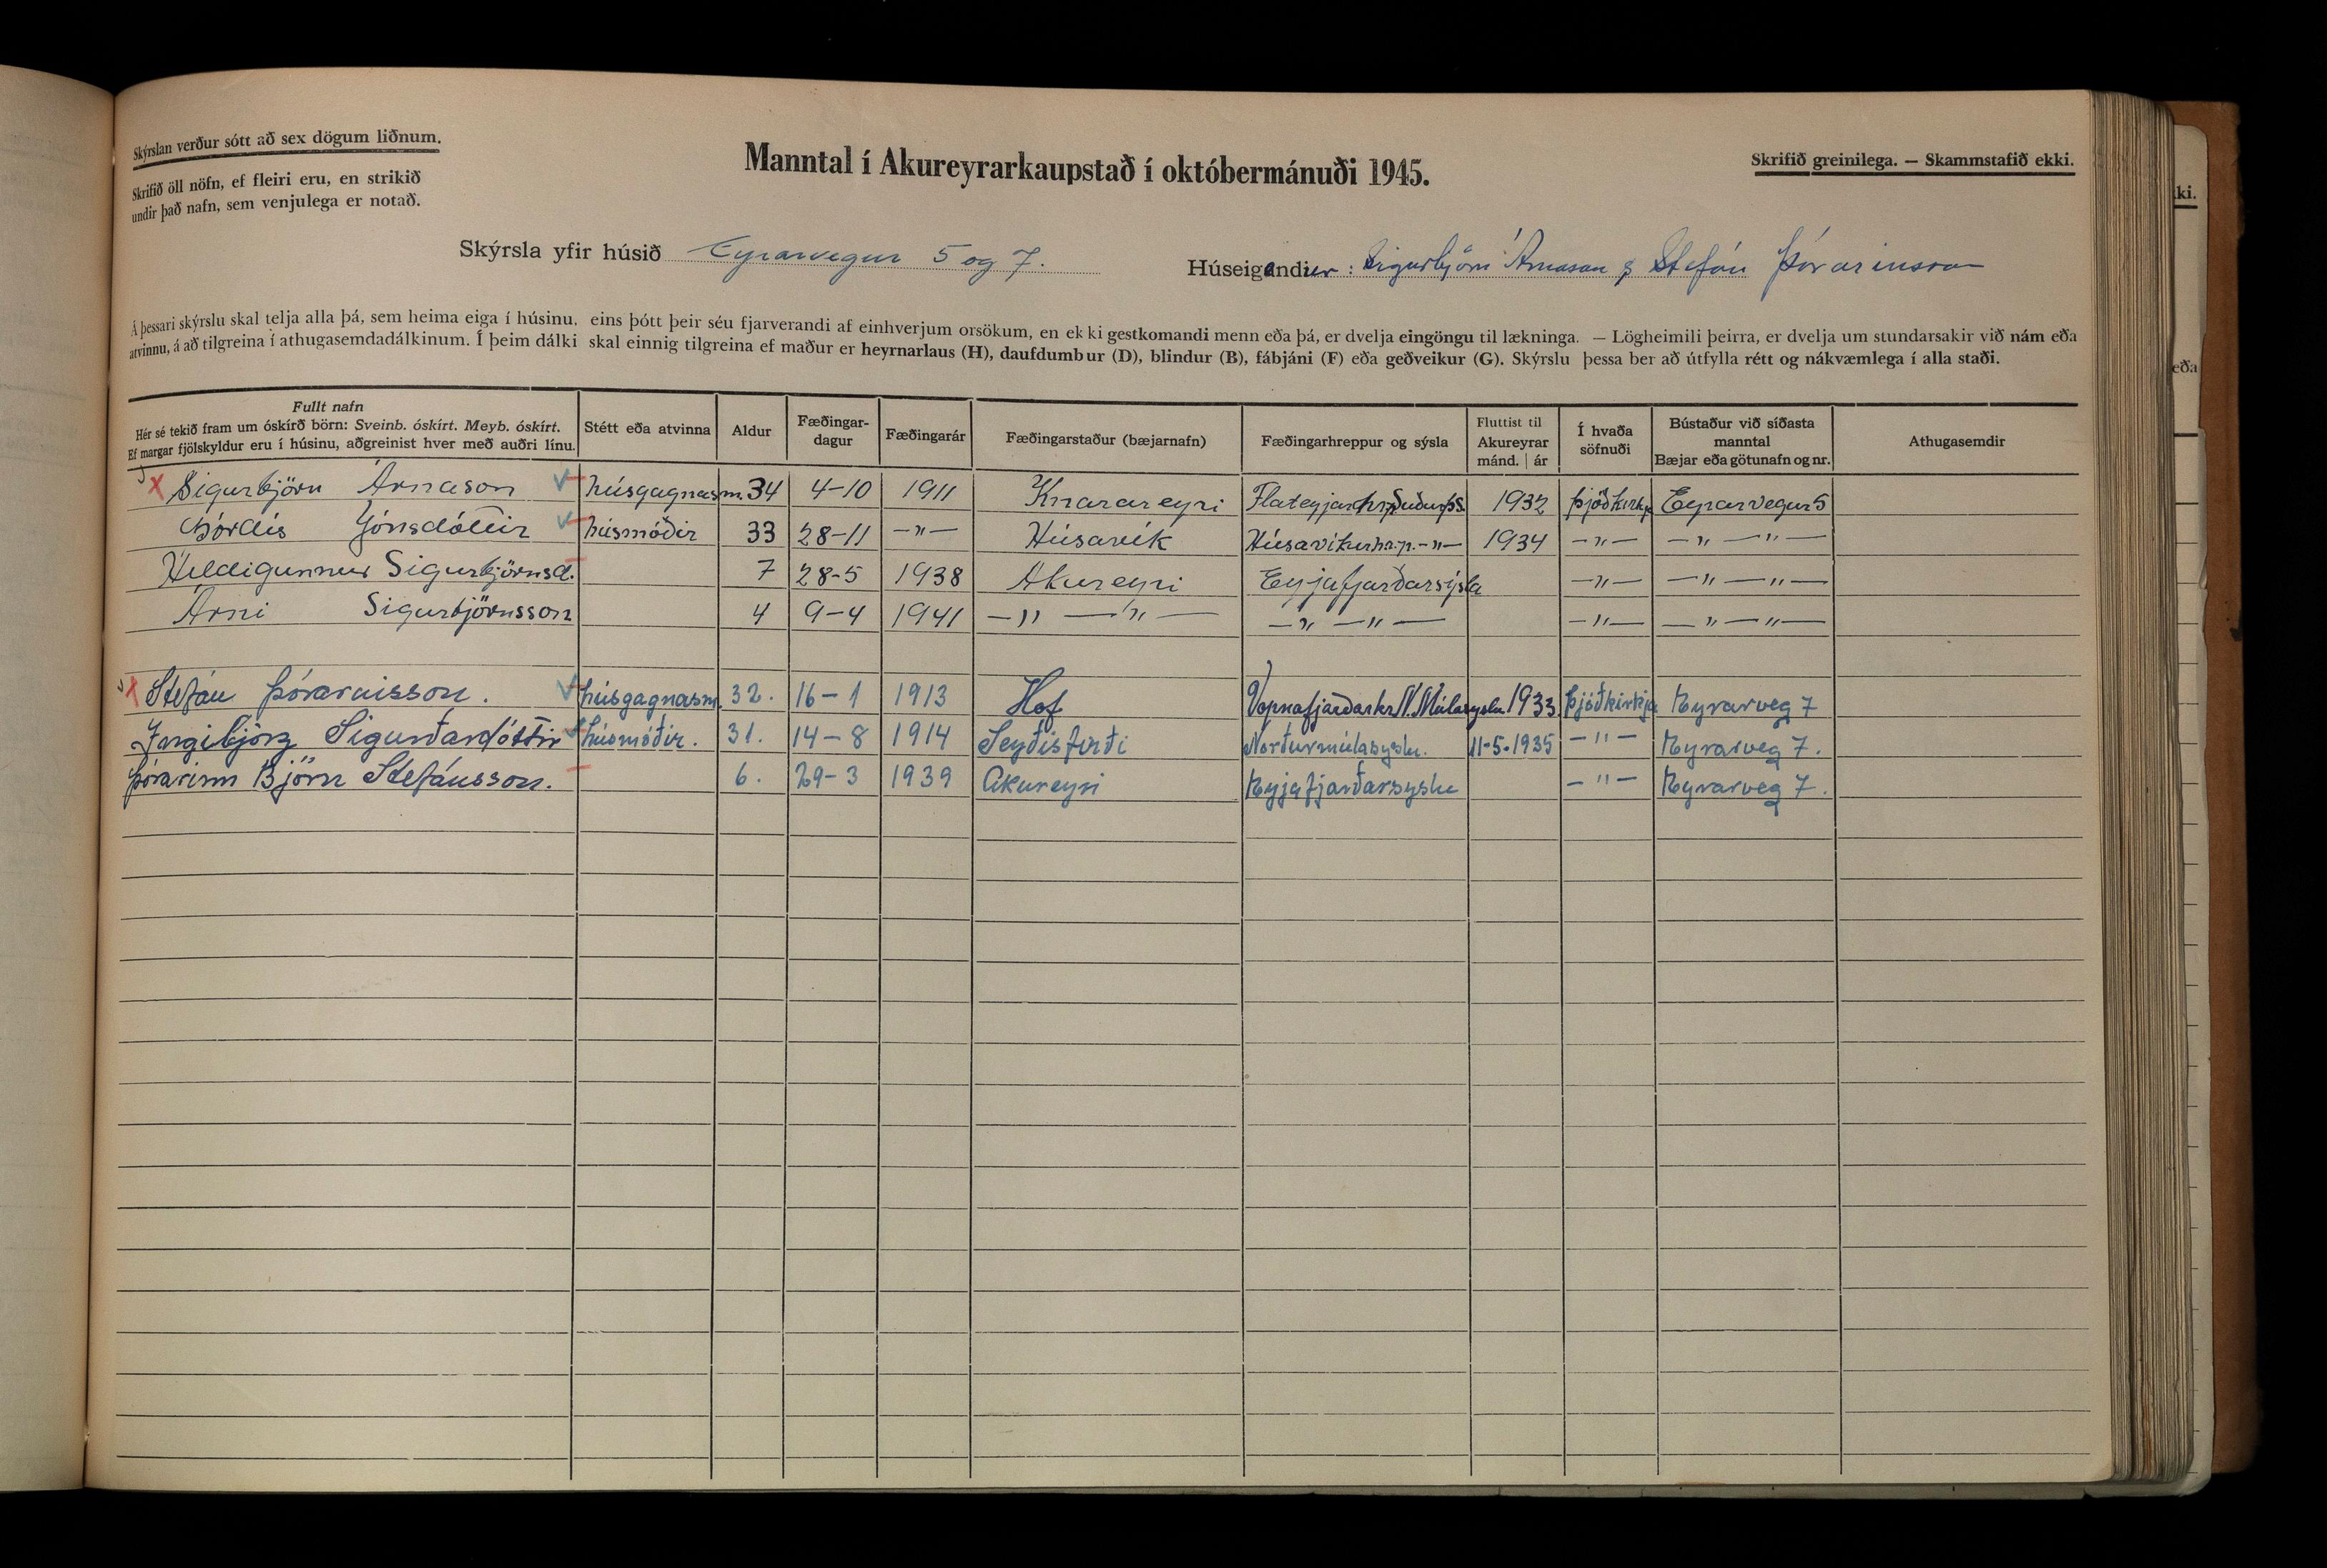 Skýrslan verður sótt að sex dögum liðnum.
Skrifið öll nöfn, ef fleiri eru, en strikið
undir það nafn, sem venjulega er notað.
Manntal í Akureyrarkaupstað í októbermánuði 1945.
Skrifið greinilega. — Skammstafið ekki.
Skýrsla yfir húsið Eyrarvegur 5 og 7.
Húseigendur: Sigurbjörn Árnason & Stefán Þórarinsson
Á þessari skýrslu skal telja alla þá, sem heima eiga í húsinu, eins þótt þeir séu fjarverandi af einhverjum orsökum, en ekki gestkomandi menn eða þá, er dvelja eingöngu til lækninga. — Lögheimili þeirra, er dvelja um stundarsakir við nám eða
atvinnu, á að tilgreina í athugasemdadálkinum. Í þeim dálki skal einnig tilgreina ef maður er heyrnarlaus (H), daufdumbur (D), blindur (B), fábjáni (F) eða geðveikur (G). Skýrslu þessa ber að útfylla rétt og nákvæmlega í alla staði.
Fullt nafn
Hér sé tekið fram um óskírð börn: Sveinb. óskírt. Meyb. óskírt.
Ef margar fjölskyldur eru í húsinu, aðgreinist hver með auðri línu.
Stétt eða atvinna
Aldur
Fæðingar-
dagur
Fæðingarár
Fæðingarstaður (bæjarnafn)
Fæðingarhreppur og sýsla
Fluttist til
Akureyrar
mánd. | ár
Í hvaða
söfnuði
Bústaður við síðasta
manntal
Bæjar eða götunafn og nr.
Athugasemdir
x Sigurbjörn Árnason húsgagnasm. 34 4-10 1911 Knarareyri Flateyjarhr. Suðurþs. 1932 Þjóðkirkj Eyrarvegur 5
Þórdís Jónsdóttir húsmóðir 33 28-11 -"- Húsavík Húsavíkurhr. -"- 1934 -"- -"- -"-
Hildigunnur Sigurbjörnsd. 7 28-5 1938 Akureyri Eyjafjarðarsýsla -"- -"- -"-
Árni Sigurbjörnsson 4 9-4 1941 -"- -"- -"- -"- -"- -"- -"-
x Stefán Þórarnisson. húsgagnasm. 32. 16-1 1913 Hof Vopnafjarðarhr N. Múlasyslu 1933. Þjóðkirkja Eyrarveg 7
Ingibjörg Sigurðardóttir húsmóðir. 31. 14-8 1914 Seyðisfirði Norðurmúlasyslu. 11-5-1935 -"- Eyrarveg 7.
Þórarinn Björn Stefánsson. 6. 29-3 1939 Akureyri Eyjafjarðarsyslu -"- Eyrarveg 7.
ki.
eða